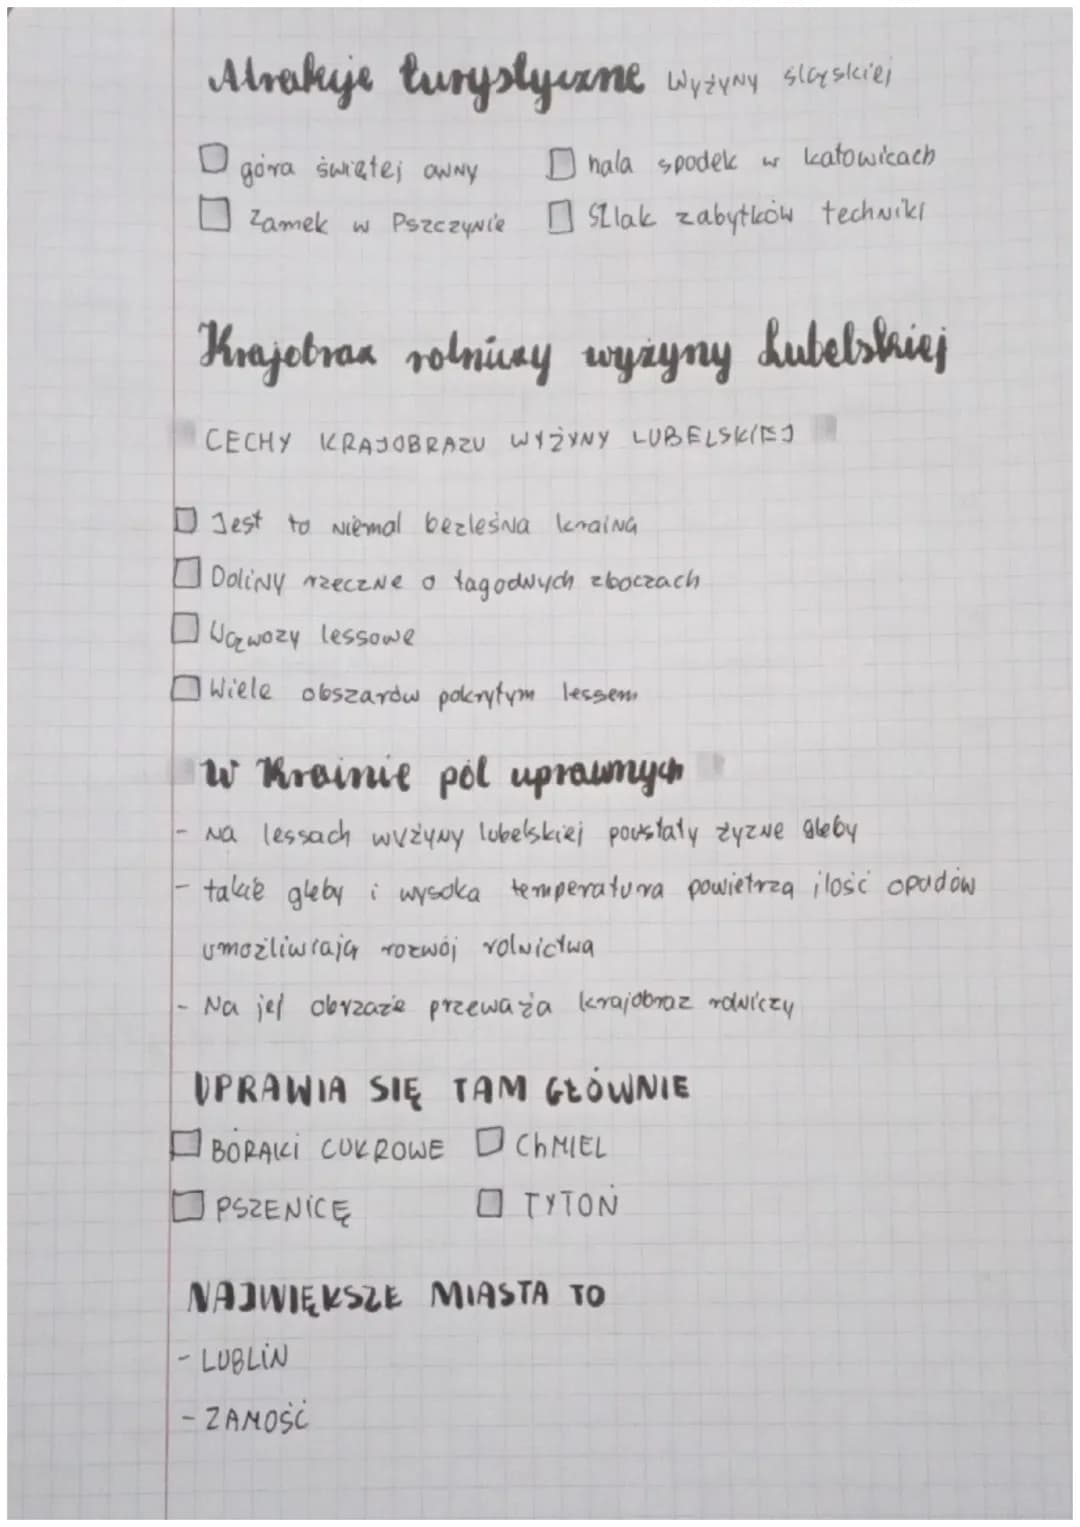 Atrakcje turystyczne Wyżyny śląskiej
góra świętej anny
hala spodek w katowicach
Zamek w Pszczynie
SZlak zabytków techniki
Krajobraz rolniczy wyżyny Lubelskiej
CECHY KRAJOBRAZU WYŻYNY LUBELSKIEJ
Jest to niemal bezleśna kraina
Doliny rzeczne o łagodnych zboczach
Wąwozy lessowe
Wiele obszarów pokrytym lessem
W Krainie pól uprawnych
- Na lessach wyżyny lubelskiej powstały żyzne gleby
- takie gleby i wysoka temperatura powietrza ilość opadów
umożliwiają rozwój rolnictwa
- Na jej obrzazie przeważa krajobraz rolniczy
UPRAWIA SIĘ TAM GŁÓWNIE
BÓRAKI CUKROWE
ChMIEL
PSZENICĘ
TYTOŃ
NAJWIĘKSZE MIASTA TO
- LUBLIN
- ZAMOŚĆ